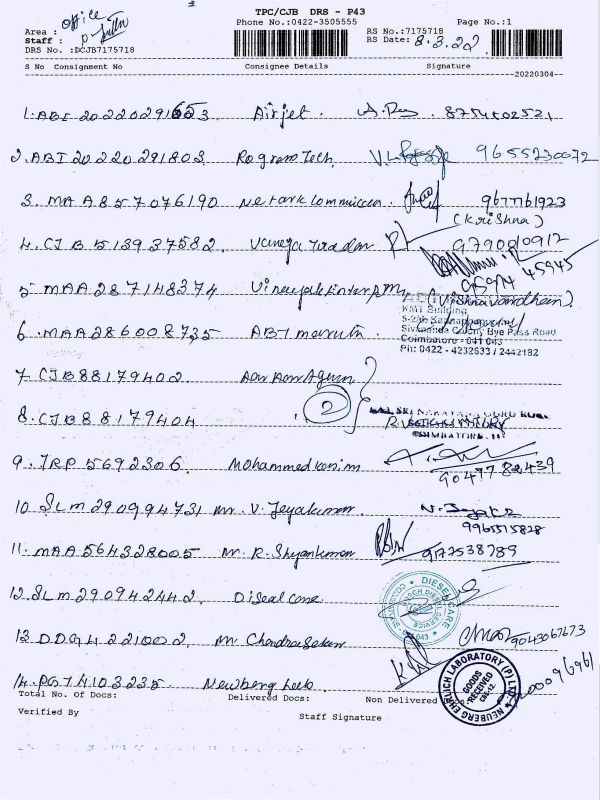 TPC/CJB DRS - P43
Phone No.:0422-3505555 Page No.:1
Area : office
Staff :
DRS No. :DCJB7175718
RS No.:7175718
RS Date: 8.3.22
S No Consignment No Consignee Details Signature
20220304
1. ABI 20220291653 Airjet . 8754402521
2. ABI 20220291803 Rogrem Tech, 9655230072
3. MAA 857076190 9677161923
(Krishna)
4. CJB 513937582 9790010912
45945
5 MAA 287148374 Vinayak Enterp
(Vishnavardhan)
KMT Building
Sivananda Colony Bye Pass Road
Coimbatore - 641 043
Ph: 0422 - 4232633 / 2442182
6. MAA 286008735 ABT maruti
7. CJB 88179402
2
8. CJB 88179404
COIMBATORE
9. TRP 5692306 Mohammed kasim
9047782439
10 SLM 290994731 Mr. V. Jeyakumar
9965515828
11. MAA 564328005 Mr. R. Shyamkumar 9172538789
12. SLM 290942442, Diseal care
DIESEL CARE
13 DDG 4221002 Mr Chandrasekar 9043067673
14. PG74103235 Newberg
NEUBERG EHRLICH LABORATORY (P) LTD
GOODS RECEIVED
Total No. Of Docs: Delivered Docs: Non Delivered
Verified By Staff Signature